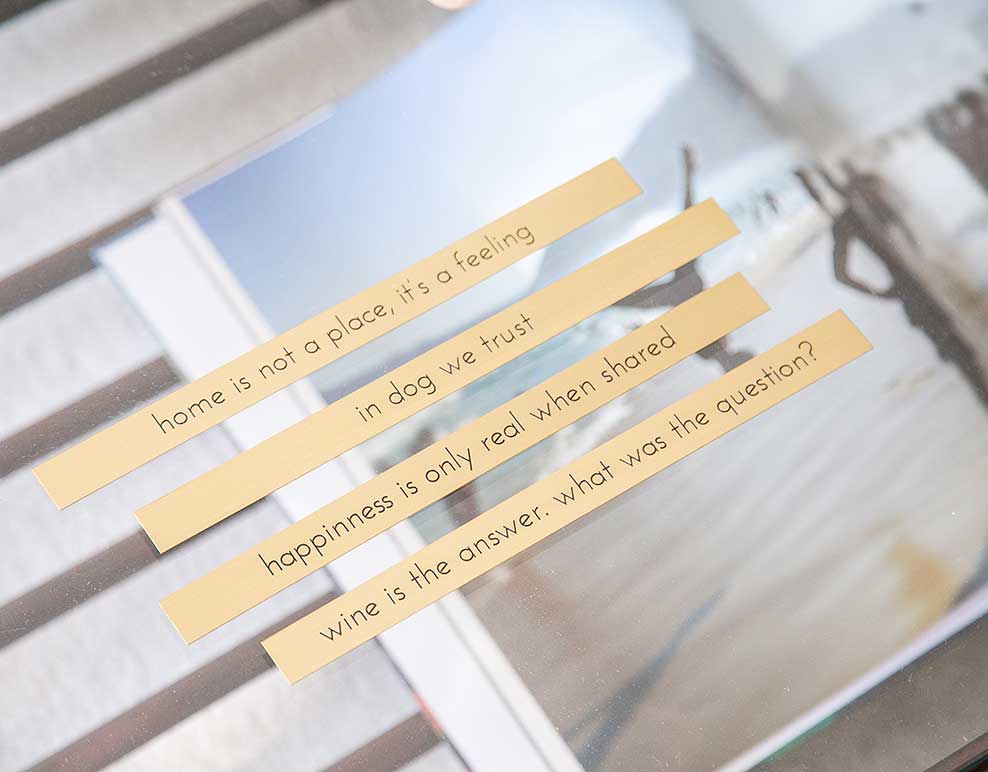 home is not a place, it's a feeling
in dog we trust
happinness is only real when shared
wine is the answer. what was the question?